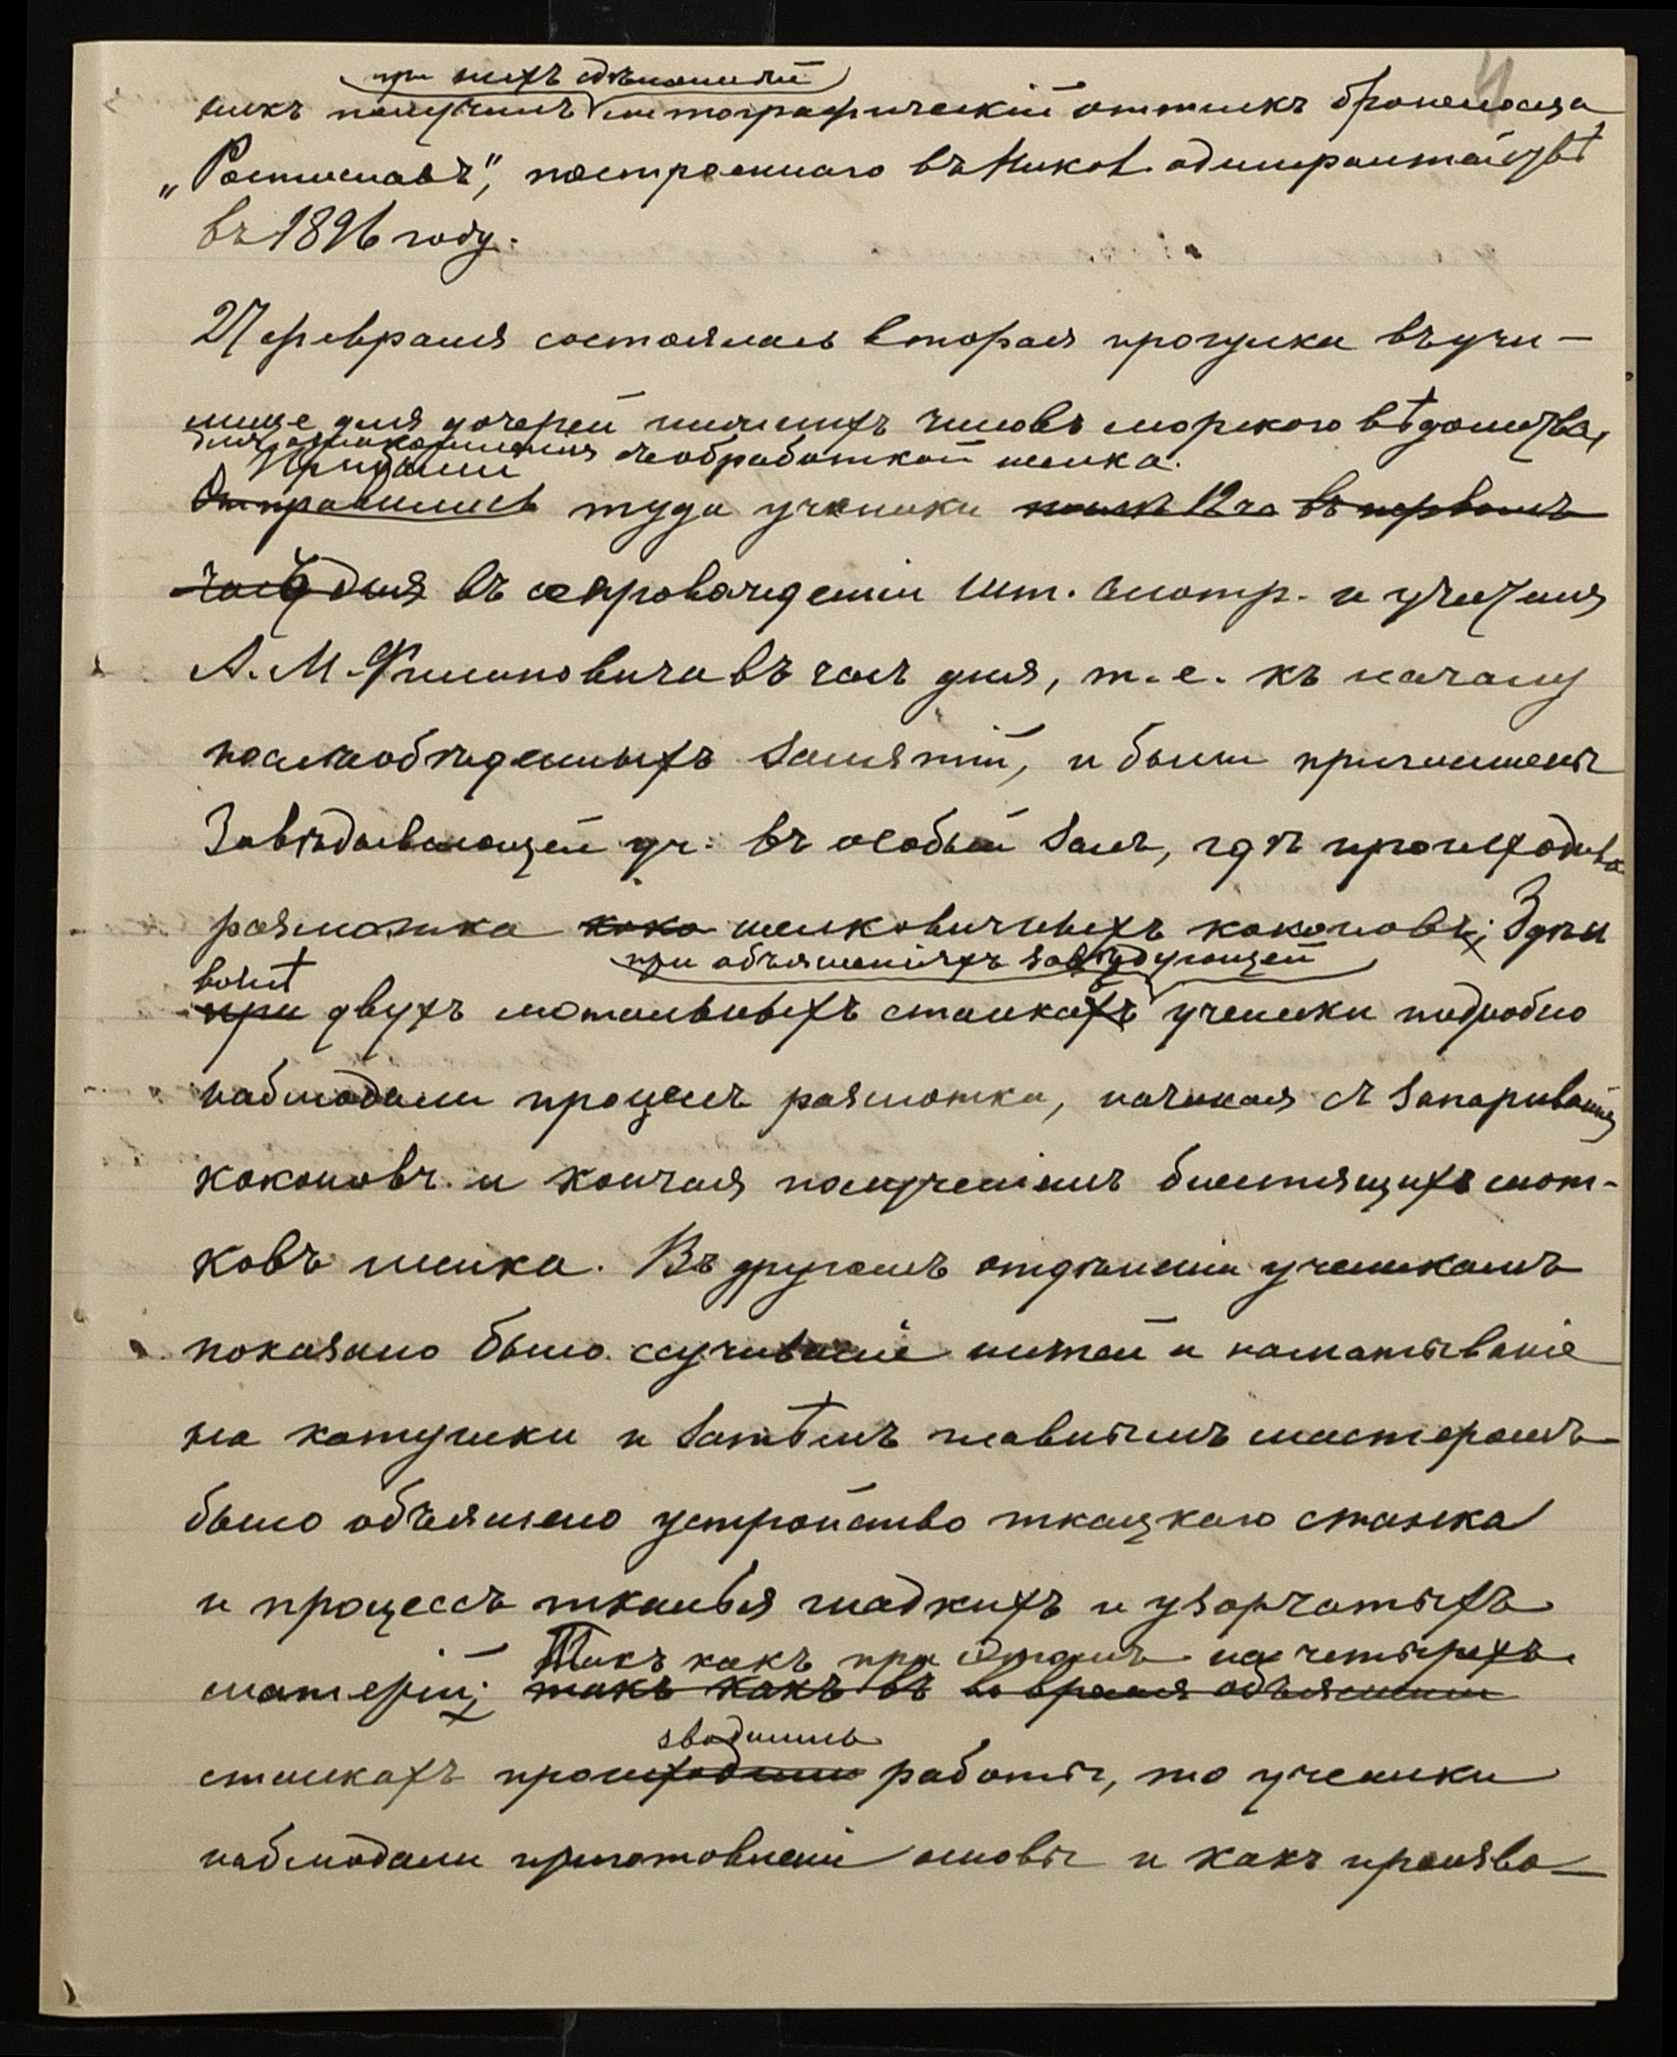 4
при нихъ сдѣланный
никъ получилъ литографическій оттискъ броненосца
„Ростиславъ", построеннаго въ Никол. адмиралтействѣ
въ 1896 году.
27 февраля состоялась вторая прогулка въ учи-
лище для дочерей нижнихъ чиновъ морского вѣдомства,
для ознакомленія съ обработкой шелка.
Пришли
Отправились туда ученики послѣ 12 ча въ первомъ
часу дня въ сопровожденіи шт. смотр. и учителя
А. М. Филиповича въ часъ дня, т. е. къ началу
послѣобѣденныхъ занятій, и были приглашены
Завѣдывающей уч. въ особый залъ, гдѣ происходила
размотка коко шелковичныхъ коконовъ; Здѣсь
при объясненіяхъ завѣдующей
возлѣ
при двухъ мотальныхъ станкахъ ученики подробно
наблюдали процессъ размотки, начиная съ запариванія
коконовъ и кончая полученіемъ блестящихъ мот-
ковъ шелка. Въ другомъ отдѣленіи ученикамъ
показано было ссучиваніе нитей и наматываніе
на катушки и затѣмъ главнымъ мастеромъ
было объяснено устройство ткацкаго станка
и процессъ тканья гладкихъ и узорчатыхъ
Такъ какъ при этомъ на четырехъ
матерій; такъ какъ въ во время объясненія
зводились
станкахъ происходили работы, то ученики
наблюдали приготовленія основы и какъ произво-